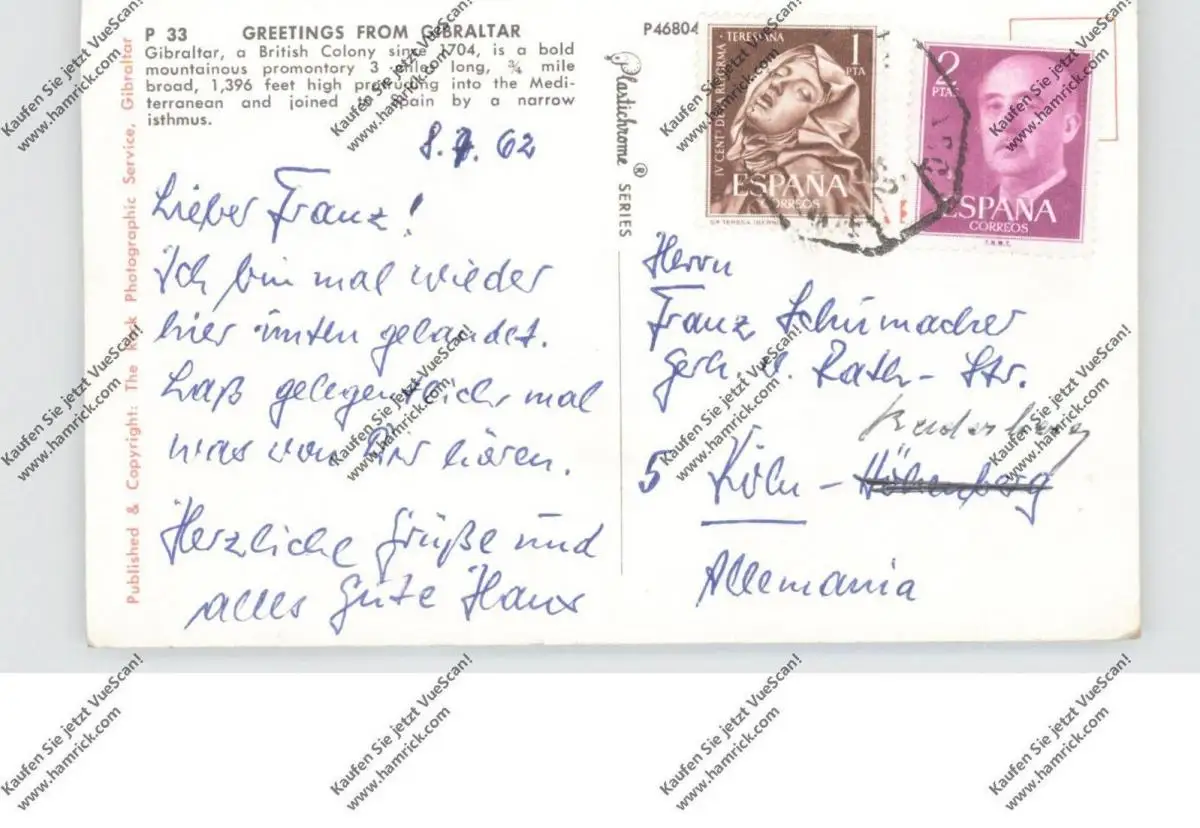 P 33 GREETINGS FROM GIBRALTAR
Gibraltar, a British Colony since 1704, is a bold
mountainous promontory 3 miles long, ¾ mile
broad, 1,396 feet high protruding into the Medi-
terranean and joined to Spain by a narrow
isthmus.
8. 62
Lieber Franz!
Ich bin mal wieder
hier unten gelandet.
Laß gelegentlich mal
was von Dir hören.
Herzliche Grüße und
alles Gute Hans
Published & Copyright: The Rock Photographic Service, Gibraltar
Plastichrome ® SERIES
P46804
IV CENTº DE LA REFORMA TERESIANA
1
PTA
ESPAÑA
CORREOS
2
PTAS
ESPAÑA
CORREOS
F.N.M.T.
Herrn
Franz Schumacher
Gerh. v. Rath-Str.
Raderberg
5 Köln - Höhenberg
Allemania
Kaufen Sie jetzt VueScan!
www.hamrick.com
Kaufen Sie jetzt VueScan!
www.hamrick.com
Kaufen Sie jetzt VueScan!
www.hamrick.com
Kaufen Sie jetzt VueScan!
www.hamrick.com
Kaufen Sie jetzt VueScan!
www.hamrick.com
Kaufen Sie jetzt VueScan!
www.hamrick.com
Kaufen Sie jetzt VueScan!
www.hamrick.com
Kaufen Sie jetzt VueScan!
www.hamrick.com
Kaufen Sie jetzt VueScan!
www.hamrick.com
Kaufen Sie jetzt VueScan!
www.hamrick.com
Kaufen Sie jetzt VueScan!
www.hamrick.com
Kaufen Sie jetzt VueScan!
www.hamrick.com